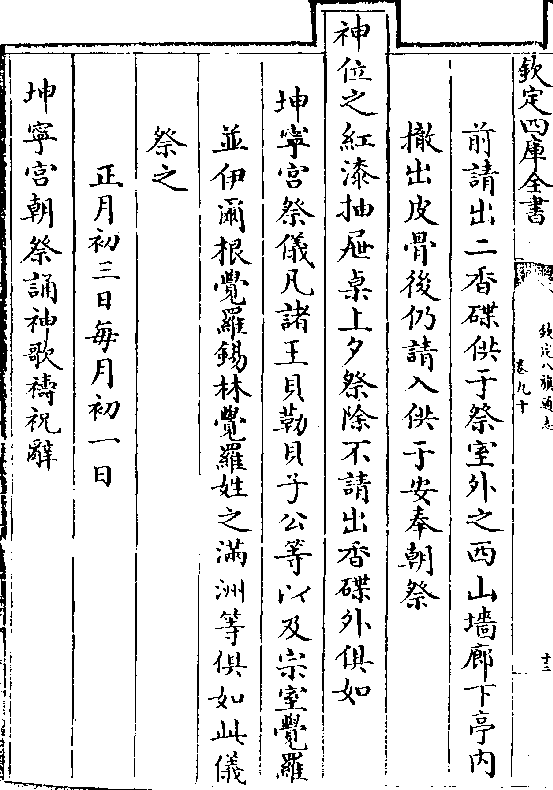 欽定四庫全書
欽定八旗通志
卷九十
十三
前請出二香碟供于祭室外之西山墻廊下亭內
撤出皮骨後仍請入供于安奉朝祭
神位之紅漆抽屜桌上夕祭除不請出香碟外俱如
坤寧宮祭儀凡諸王貝勒貝子公等以及宗室覺羅
並伊爾根覺羅錫林覺羅姓之滿洲等俱如此儀
祭之
正月初三日每月初一日
坤寧宮朝祭誦神歌禱祝辭